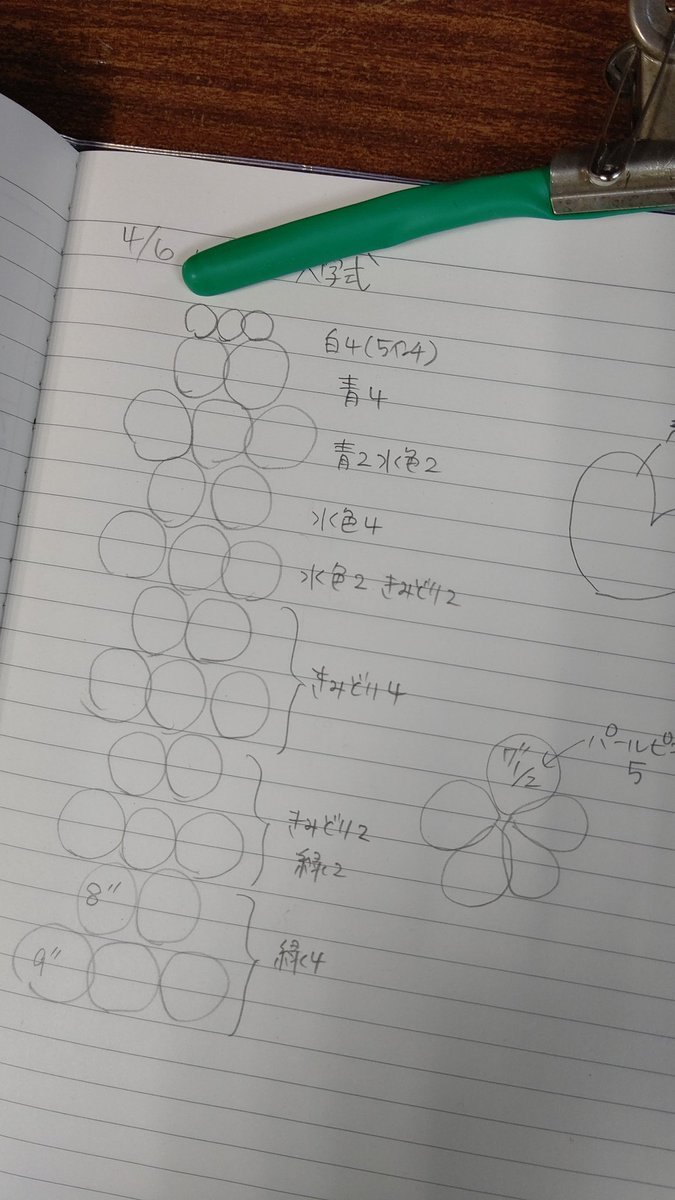 4/6 入学式
白4(5イン4)
青4
青2水色2
水色4
水色2 きみどり2
きみどり4
きみどり2
緑2
緑4
8"
9"
7"1/2
パールピ
5